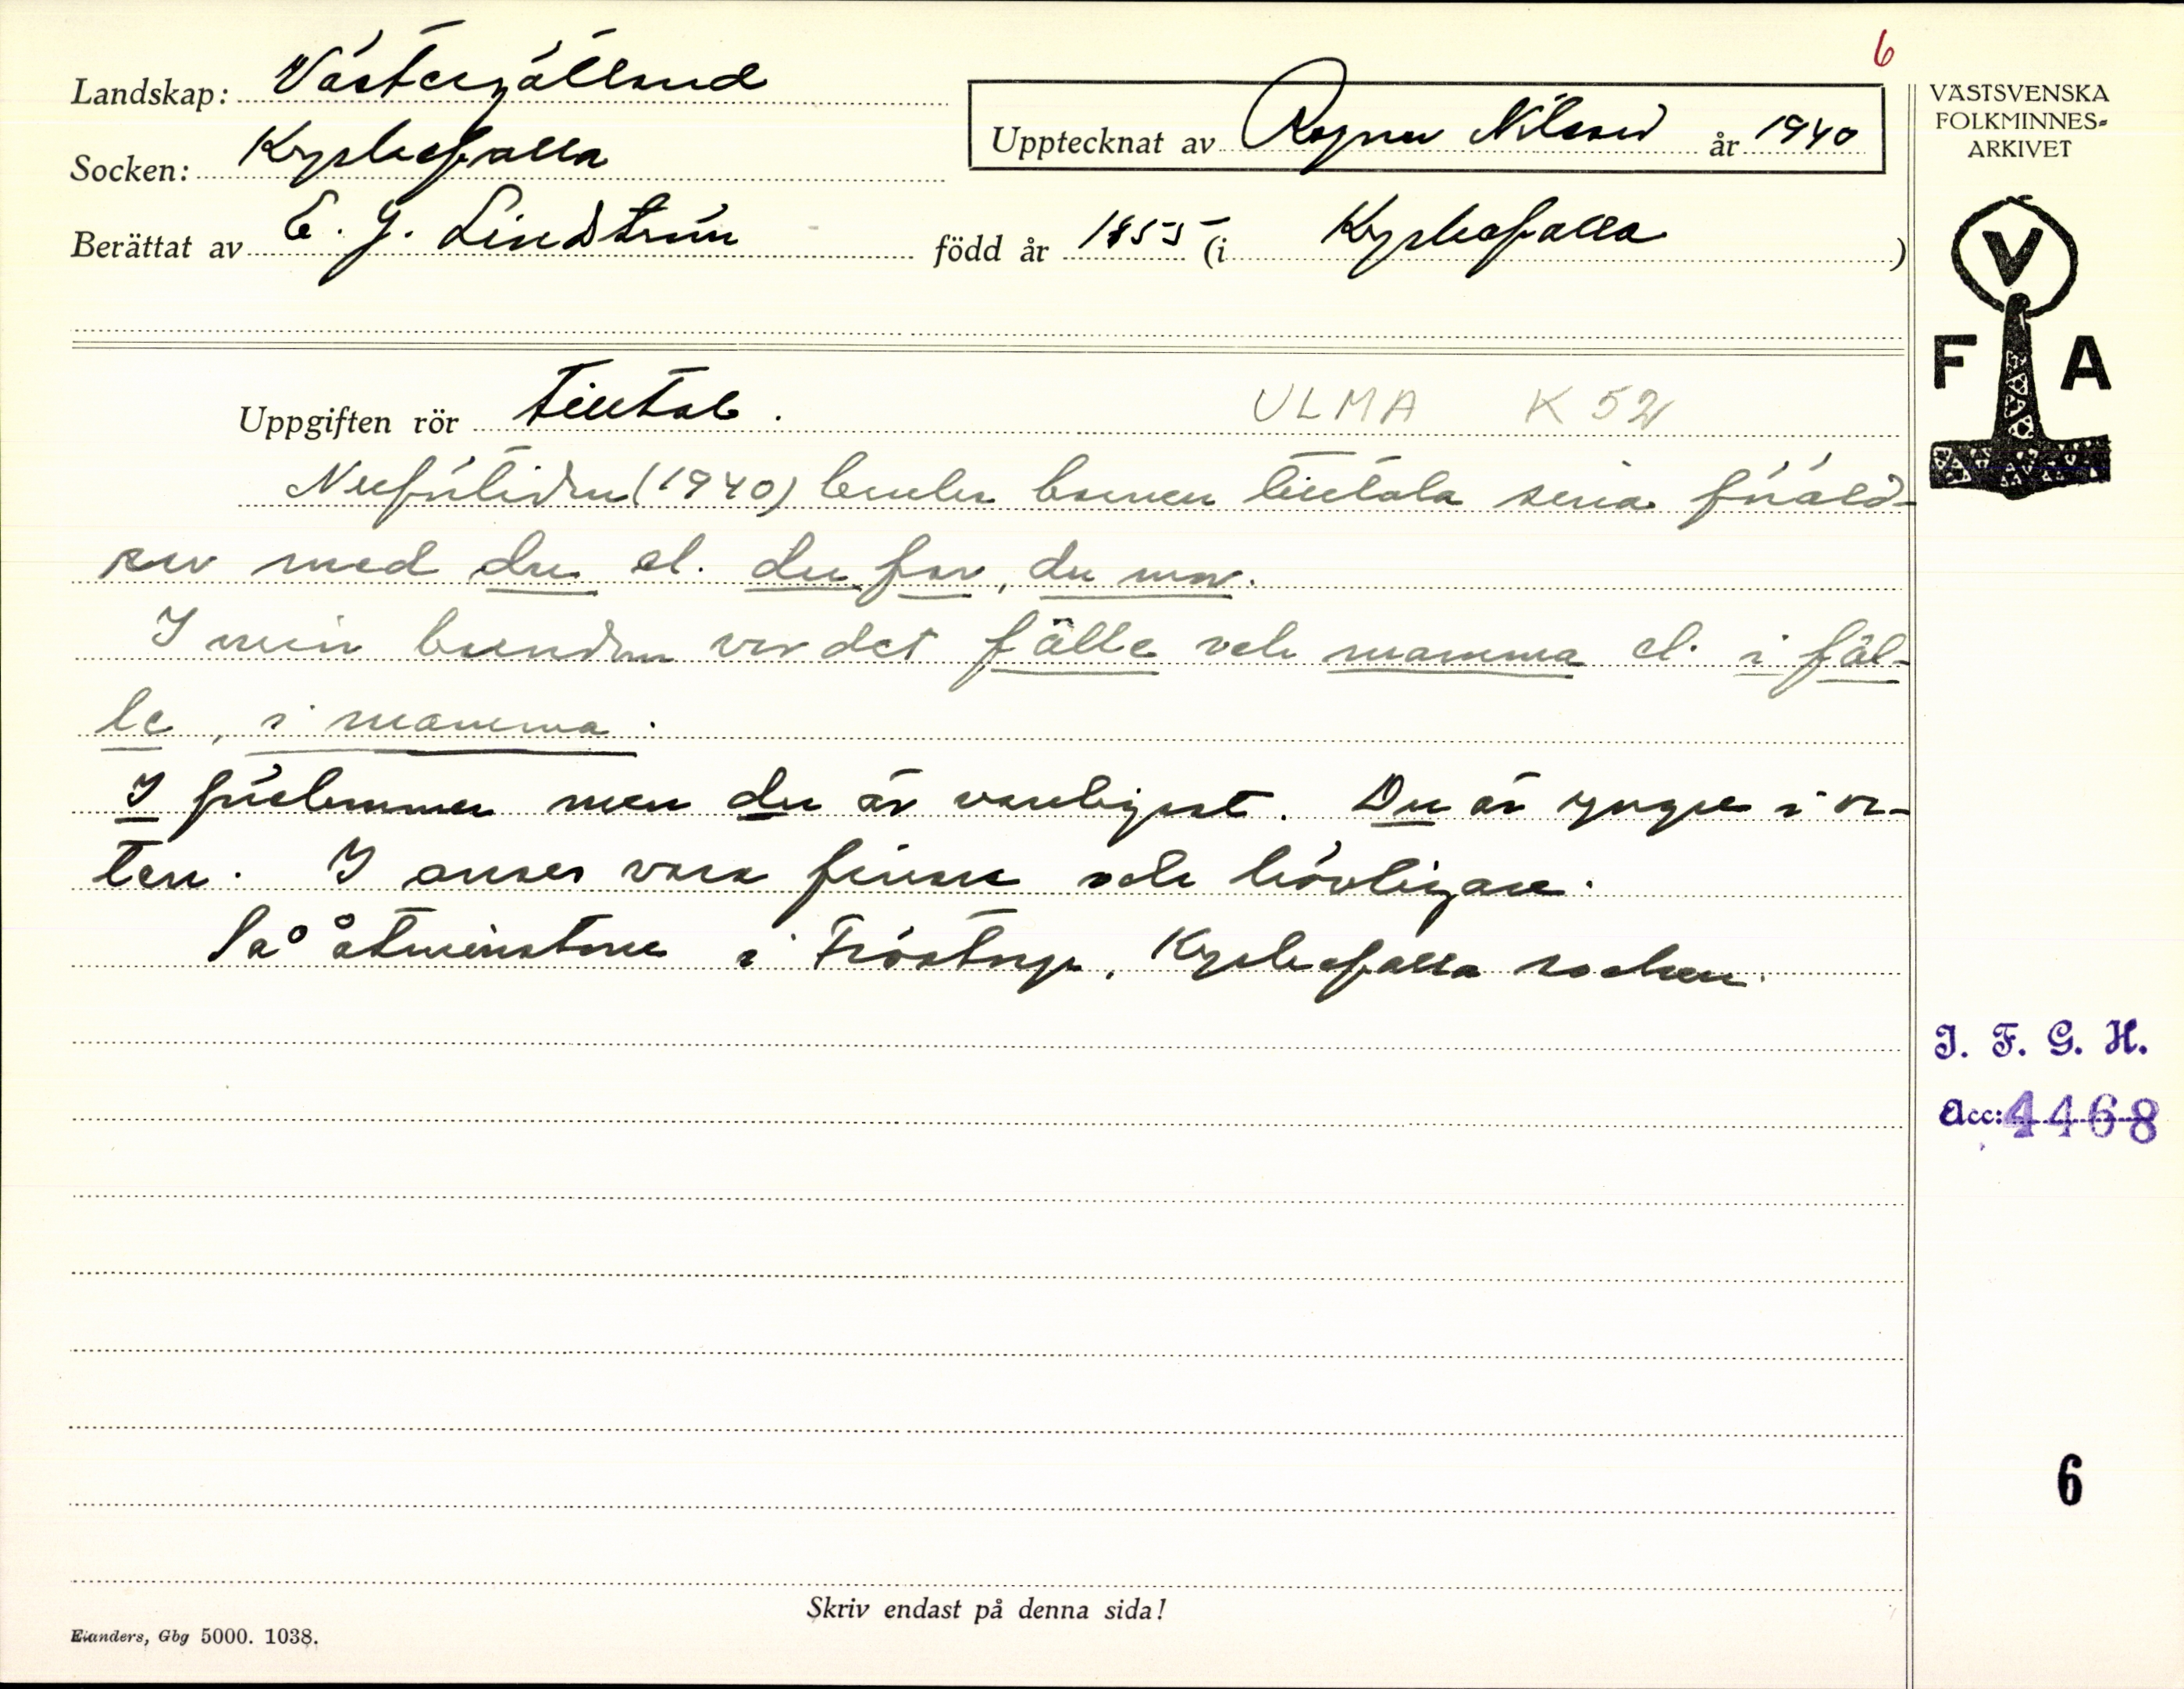 6
Landskap: Västergötland
Socken: Kyrkefalla
Upptecknat av Ragnar Nilsson år 1940
VÄSTSVENSKA
FOLKMINNES=
ARKIVET
Berättat av E. J. Lindström född år 1855 (i Kyrkefalla)
V
F A
Uppgiften rör tilltal. ULMA K 52
Nuförtiden (1940) bruka barnen tilltala sina föräld-
rar med du el. du far, du mor.
I min barndom var det fälle och mamma el. i fäl-
le, i mamma.
I förekommer men du är vanligast. Du är yngre i or-
ten. I anses vara finare och hövligare.
Så åtminstone i Fröstorp, Kyrkefalla socken.
I. F. G. H.
Acc: 4468
6
Skriv endast på denna sida!
Elanders, Gbg 5000. 1038.